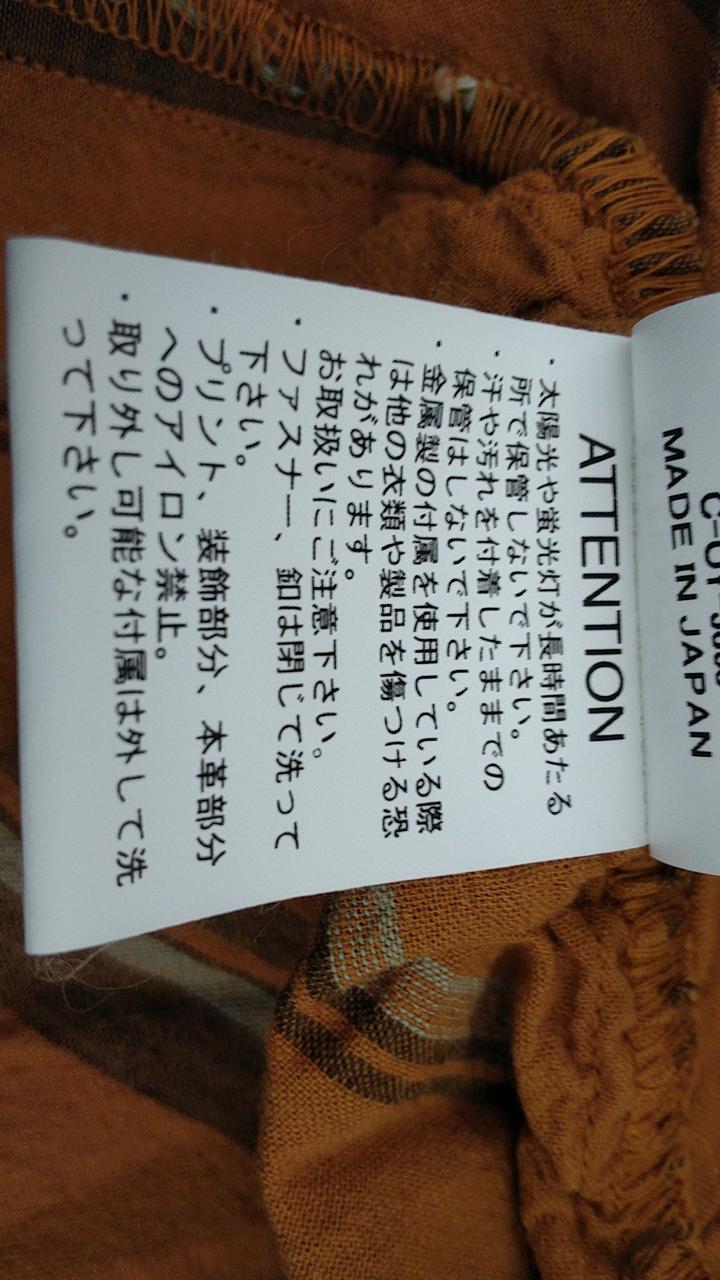 MADE IN JAPAN
ATTENTION
・太陽光や蛍光灯が長時間あたる
所で保管しないで下さい。
・汗や汚れを付着したままでの
保管はしないで下さい。
・金属製の付属を使用している際
は他の衣類や製品を傷つける恐
れがあります。
お取扱いにご注意下さい。
・ファスナー、釦は閉じて洗って
下さい。
・プリント、装飾部分、本革部分
へのアイロン禁止。
・取り外し可能な付属は外して洗
って下さい。